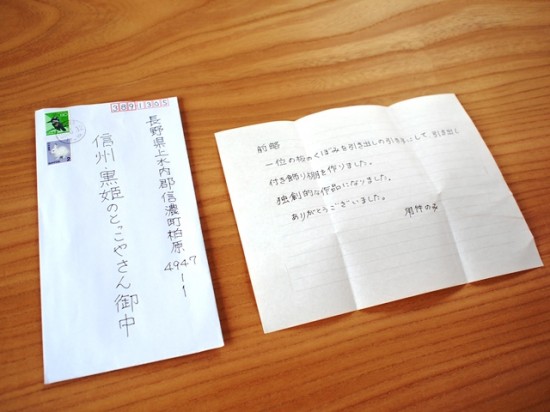 3891305
長野県上水内郡信濃町柏原
4947
ー1
信州 黒姫のとこやさん御中
前略
一位の板のくぼみを引き出しの引き手として、引き出し
付き飾り棚を作りました。
独創的な作品になりました。
ありがとうございました。